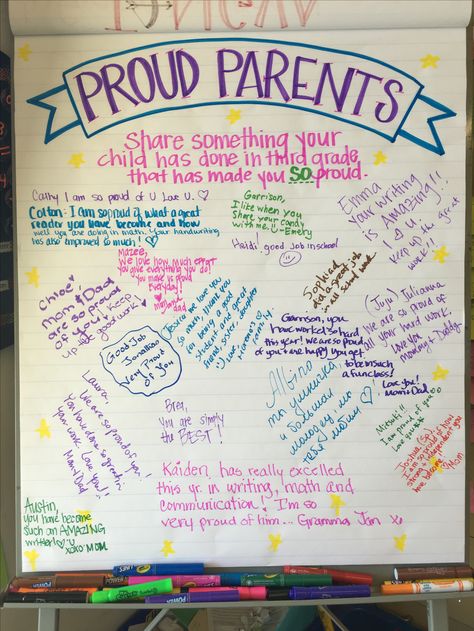 PROUD PARENTS
Share something your
child has done in third grade
that has made you so proud.
Cathy I am so proud of U Love U. ♡
Colton- I am so proud of what a great
reader you have become and how
well you are doing in math. Your handwriting
has also improved so much! ♡
Garrison,
I like when you
Share your candy
with me. -Emery
Haidi! good Job in school
Emma
Your writing
is Amazing!!
I ♡ U
Keep up the great
work!!
Mazee,
We love how much effort
you give everything you do!
You make us proud
Everyday!
♡ Mommy
and dad
Chloe!
mom & Dad
are so proud
of you! Keep
up the good work!
Good Job
Jonathan
Very Proud
of You
we love you
so much. Thank you
for being a good
student and great
friend, sister, daughter
Garrison, you
have worked so hard
this year! We are so proud
of you & are happy you get
to be in such
a fun class!
Love you!
Mom & Dad
(Juju) Julianna
We are so proud of
all your hard work!
Love you
mommy & Daddy
Laura,
We are so proud of you.
You have done so great in
your work. Love you!
Mom & Dad
Brea,
You are simply
the BEST!
ты умница
и большая
молодец
I am proud of you
Love you
Joshua
I am so proud of how
strong & independent you
have become
♡ Mom
Kaiden, has really excelled
this yr. in writing, math and
communication! I'm so
very proud of him... Gramma Jan xo
Austin,
you have become
such an AMAZING
writer! ♡
xoxo MOM